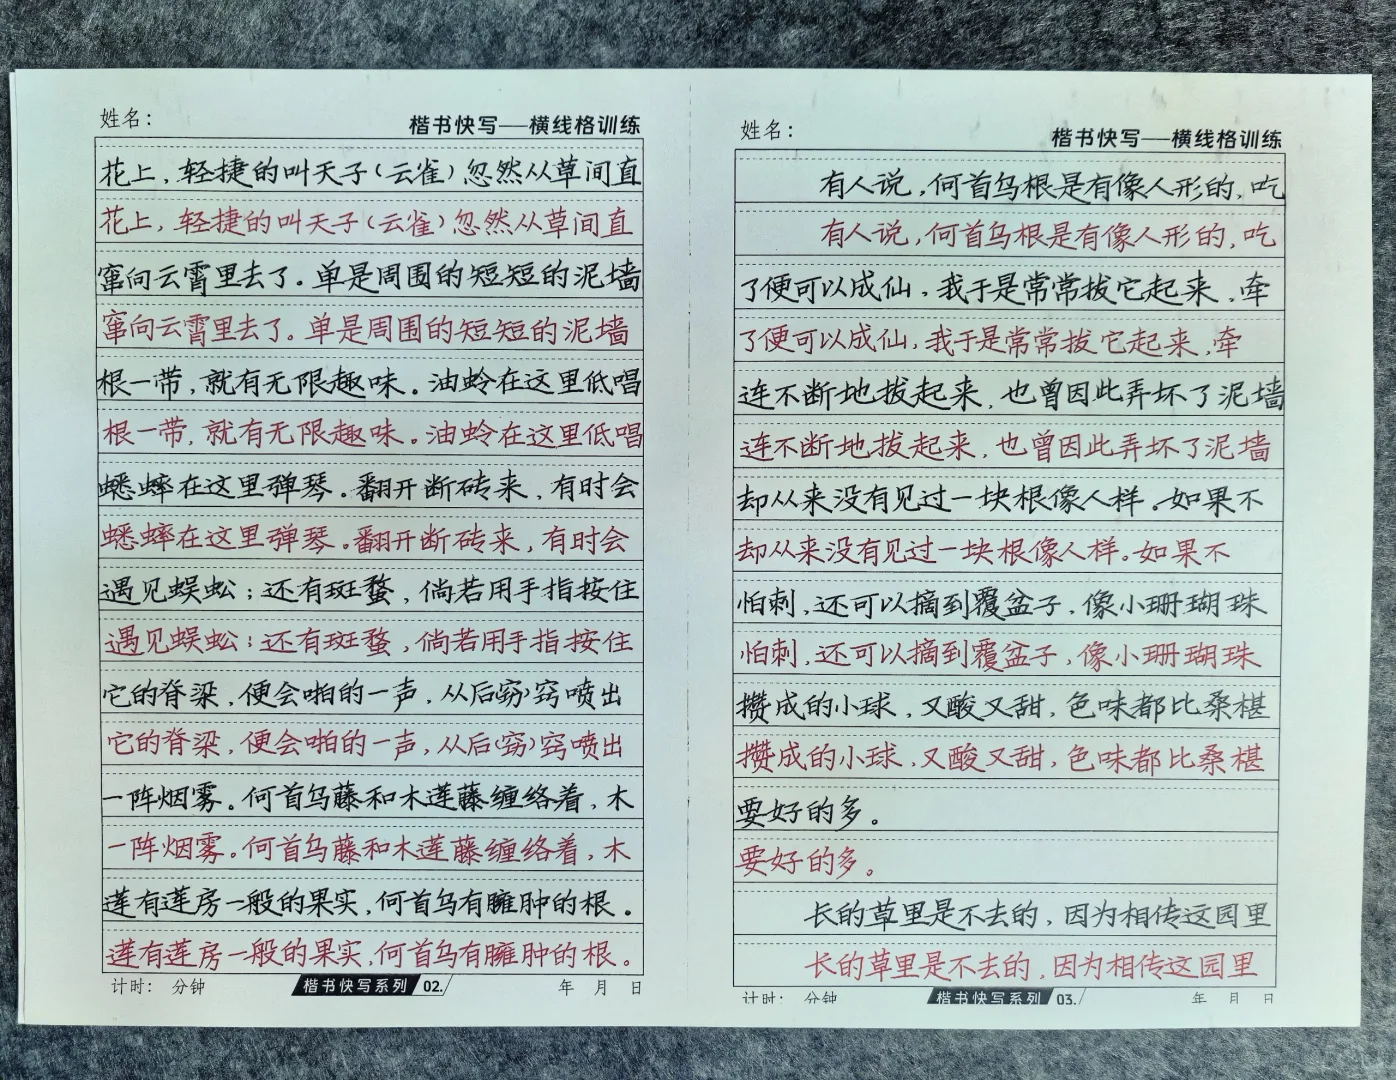 姓名：
楷书快写——横线格训练
花上，轻捷的叫天子（云雀）忽然从草间直
花上，轻捷的叫天子（云雀）忽然从草间直
窜向云霄里去了。单是周围的短短的泥墙
窜向云霄里去了。单是周围的短短的泥墙
根一带，就有无限趣味。油蛉在这里低唱
根一带，就有无限趣味。油蛉在这里低唱
蟋蟀在这里弹琴。翻开断砖来，有时会
蟋蟀在这里弹琴。翻开断砖来，有时会
遇见蜈蚣；还有斑蝥，倘若用手指按住
遇见蜈蚣；还有斑蝥，倘若用手指按住
它的脊梁，便会啪的一声，从后（窍）窍喷出
它的脊梁，便会啪的一声，从后（窍）窍喷出
一阵烟雾。何首乌藤和木莲藤缠络着，木
一阵烟雾。何首乌藤和木莲藤缠络着，木
莲有莲房一般的果实，何首乌有臃肿的根。
莲有莲房一般的果实，何首乌有臃肿的根。
计时： 分钟
楷书快写系列 02.
年 月 日
姓名：
楷书快写——横线格训练
有人说，何首乌根是有像人形的，吃
有人说，何首乌根是有像人形的，吃
了便可以成仙，我于是常常拔它起来，牵
了便可以成仙，我于是常常拔它起来，牵
连不断地拔起来，也曾因此弄坏了泥墙
连不断地拔起来，也曾因此弄坏了泥墙
却从来没有见过一块根像人样。如果不
却从来没有见过一块根像人样。如果不
怕刺，还可以摘到覆盆子，像小珊瑚珠
怕刺，还可以摘到覆盆子，像小珊瑚珠
攒成的小球，又酸又甜，色味都比桑椹
攒成的小球，又酸又甜，色味都比桑椹
要好的多。
要好的多。
长的草里是不去的，因为相传这园里
长的草里是不去的，因为相传这园里
计时： 分钟
楷书快写系列 03.
年 月 日